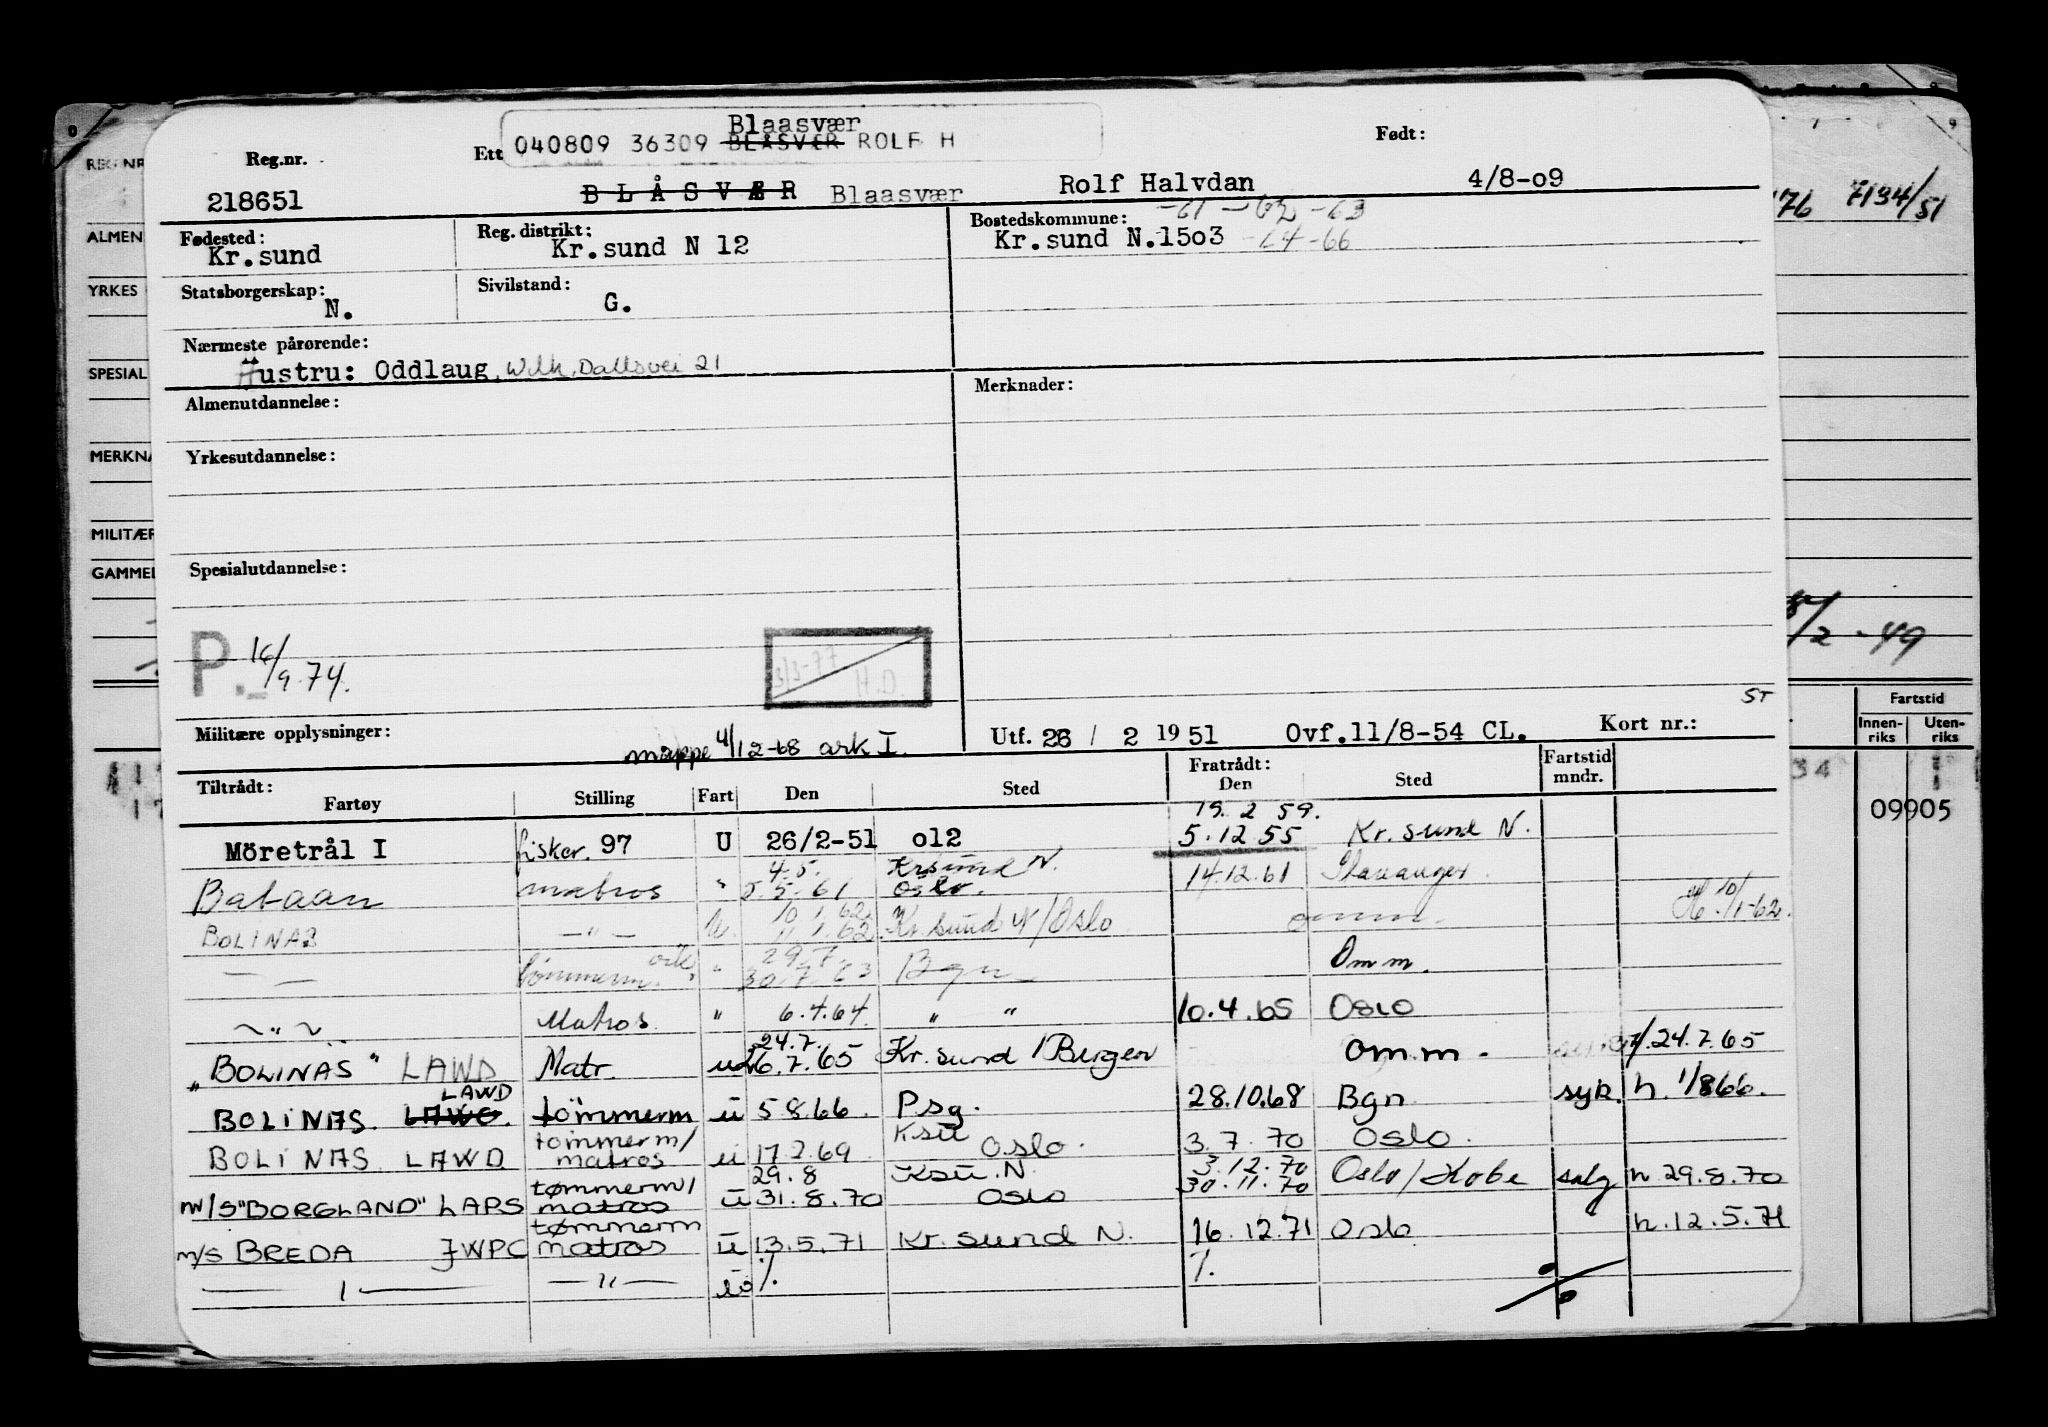 Blaasvær
040809 36309 BLÅSVÆR ROLF H
Reg.nr. Ett Født:
218651 BLÅSVÆR Blaasvær Rolf Halvdan 4/8-o9
Fødested: Reg. distrikt: Bostedskommune: -61 -62 -63
Kr.sund Kr.sund N 12 Kr.sund N.15o3 -64 -66
Statsborgerskap: Sivilstand:
N. G.
Nærmeste pårørende:
Hustru: Oddlaug, Wilh. Dallsvei 21
Almenutdannelse: Merknader:
Yrkesutdannelse:
Spesialutdannelse:
P. 16/9-74.
3/3-77 H.D.
ST
Militære opplysninger: mappe 4/12-68 ark I. Utf. 26 / 2 1951 Ovf.11/8-54 CL. Kort nr.:
Tiltrådt: Fratrådt: Fartstid
Fartøy Stilling Fart Den Sted Den Sted mndr.
19. 2 59.
Möretrål I fisker. 97 U 26/2-51 o12 5.12 55 Kr. sund N.
4.5. Kr.sund N.
Bataan matros " 5.5.61 Oslo. 14.12.61 Stavanger.
10.1.62
BOLINAS -"- U. 11.1.62 Kr sund N/Oslo omm. 10/1-62.
29.7.
— — tømmerm. " 30.7.63 Bgn Omm.
~ " ~ Matros " 6.4.64. " " 10.4.65 Oslo
24.7.
"BOLINAS" LAWD Matr. u 26.7.65 Kr. sund / Bergen omm. 24.7.65
LAWD
BOLINAS. LAWO. tømmerm u 5 8 66. Psg. 28.10.68 Bgn syk. h. 1/8 66.
tømmerm/ Ksu
BOLINAS LAWD matros u 17 2 69 Oslo. 3. 7. 70 Oslo.
tømmerm/ 29.8 Ksu. N 3.12.70
m/S "BORGLAND" LAPS matros u 31.8.70 Oslo 30.11.70 Oslo/Kobe salg h. 29.8.70
tømmerm
m/s BREDA JWPC matros u 13.5.71 Kr. sund N. 16.12.71 Oslo h.12.5.71
— " — —"— %. %.
REG.NR
ALMEN
YRKES
SPESIAL
MERKNA
MILITÆR
GAMMEL
76 7134/51
/2 -49
Fartstid
Innen-riks Uten-riks
34
09905